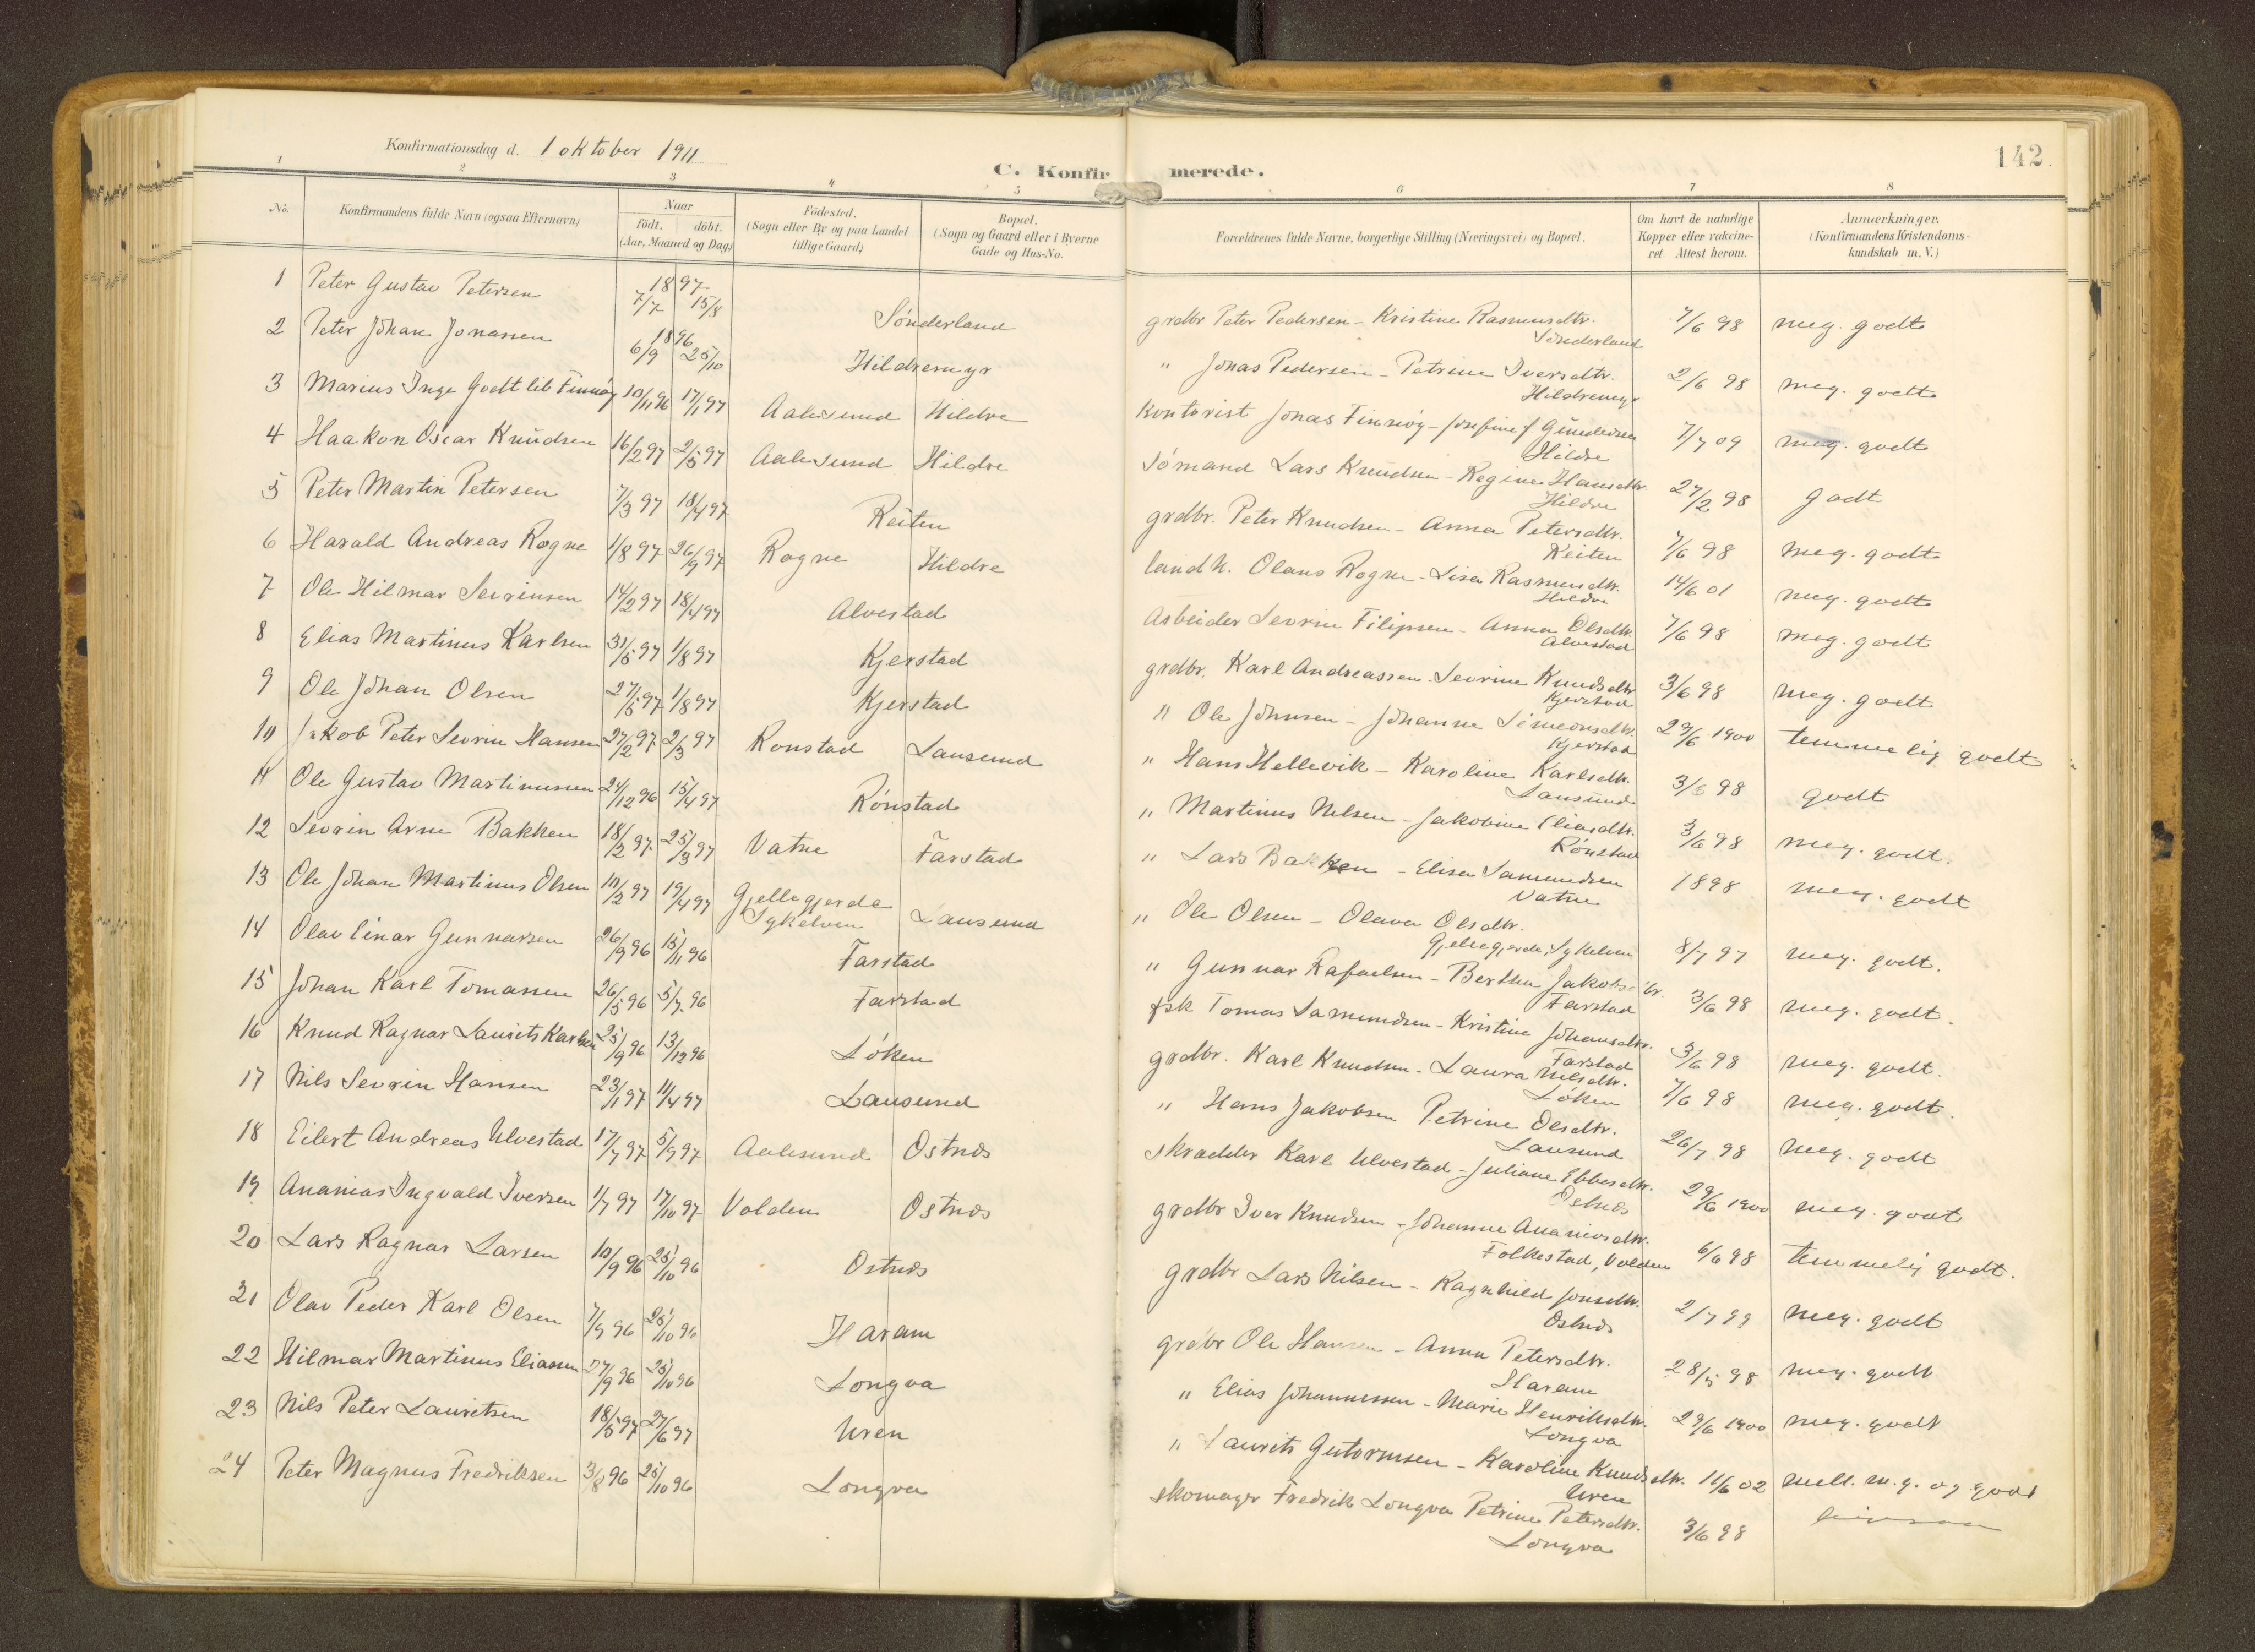 Konfirmationsdag d. 1 oktober 1911
C. Konfirmerede.
142.
1 2 3 4 5 6 7 8
No. Konfirmandens fulde Navn (ogsaa Efternavn) Naar født. døbt. (Aar, Maaned og Dag) Fødested. (Sogn eller By og paa Landet tillige Gaard) Bopæl. (Sogn og Gaard eller i Byerne Gade og Hus-No. Forældrenes fulde Navne, borgerlige Stilling (Næringsvei) og Bopæl. Om havt de naturlige Kopper eller vakcineret. Attest herom. Anmærkninger. (Konfirmandens Kristendomskundskab m. V.)
1 Peter Gustav Petersen 1897 7/7 15/8 Sønderland grdbr Peter Pedersen - Kristine Rasmusdtr. Sønderland 7/6 98 meg. godt
2 Peter Johan Jonassen 1896 6/9 25/10 Hildremyr " Jonas Pedersen - Petrine Iversdtr. Hildremyr 2/6 98 meg. godt
3 Marius Inge Godtlib Finnøy 10/11 96 17/1 97 Aalesund Hildre Kontorist Jonas Finnøy - Josefine f. Gundersen Hildre 7/7 09 meg. godt
4 Haakon Oscar Knudsen 16/2 97 2/5 97 Aalesund Hildre Sømand Lars Knudsen - Regine Hansdtr. Hildre 27/2 98 godt
5 Peter Martin Petersen 7/3 97 18/4 97 Reiten grdbr. Peter Knudsen - Anna Petersdtr. Reiten 7/6 98 meg. godt
6 Harald Andreas Rogne 1/8 97 26/9 97 Rogne Hildre landh. Olaus Rogne - Lisa Rasmusdtr. Hildre 14/6 01 meg. godt
7 Ole Hilmar Sevrinsen 14/2 97 18/4 97 Alvestad Arbeider Sevrin Filipsen - Anna Olsdtr. Alvestad 7/6 98 meg. godt
8 Elias Martinus Karlsen 31/5 97 1/8 97 Kjerstad grdbr. Karl Andreassen - Sevrine Knudsdtr Kjerstad 3/6 98 meg. godt
9 Ole Johan Olsen 27/5 97 1/8 97 Kjerstad " Ole Johnsen - Johanne Simeonsdtr. Kjerstad 29/6 1900 temmelig godt
10 Jakob Peter Sevrin Hansen 27/2 97 2/3 97 Ronstad Lausund " Hans Hellevik - Karoline Karlsdtr. Lausund 3/6 98 godt
11 Ole Gustav Martinussen 24/12 96 15/4 97 Rønstad " Martinus Nilsen - Jakobine Eliasdtr. Rønstad 3/6 98 meg. godt.
12 Sevrin Arne Bakken 18/2 97 25/3 97 Vatne Farstad " Lars Bakken - Elisa Samundsen Vatne 1898 meg. godt
13 Ole Johan Martinus Olsen 10/2 97 19/4 97 Gjellegjerde Sykelven Lausund " Ole Olsen - Olava Olsdtr. Gjellegjerde, Sykelven 8/7 97 meg. godt.
14 Olav Einar Gunnarsen 26/9 96 15/11 96 Farstad " Gunnar Rafaelsen - Berthe Jakobsdtr. Farstad 3/6 98 meg. godt.
15 Johan Karl Tomassen 26/5 96 5/7 96 Farstad fsk Tomas Samundsen - Kristine Johansdtr. Farstad 3/6 98 meg. godt.
16 Knud Ragnar Laurits Karlsen 25/9 96 13/12 96 Løken grdbr. Karl Knudsen - Laura Nilsdtr. Løken 7/6 98 meg. godt.
17 Nils Sevrin Hansen 23/1 97 11/4 97 Lausund " Hans Jakobsen Petrine Olsdtr. Lausund 26/7 98 meg. godt
18 Eilert Andreas Ulvestad 17/7 97 5/9 97 Aalesund Ostnes skrædder Karl Ulvestad - Juliane Ebbesdtr. Ostnes 29/6 1900 meg. godt
19 Ananias Ingvald Iversen 1/7 97 17/10 97 Volden Ostnes grdbr Iver Knudsen - Johanne Ananiasdtr. Folkestad, Volden 6/6 98 temmelig godt.
20 Lars Ragnar Larsen 10/9 96 25/10 96 Ostnes grdbr Lars Nilsen - Ragnhild Jonsdtr. Ostnes 2/7 99 meg. godt
21 Olav Peder Karl Olsen 7/9 96 25/10 96 Haram grdbr Ole Hansen - Anna Petersdtr. Haram 28/5 98 meg. godt
22 Hilmar Martinus Eliassen 27/9 96 25/10 96 Longva " Elias Johannessen - Marie Henriksdtr. Longva 29/6 1900 meg. godt
23 Nils Peter Lauritsen 18/5 97 27/6 97 Uren " Laurits Gutormsen - Karoline Knudsdtr. Uren 11/6 02 mell. m.g. og godt
24 Peter Magnus Fredriksen 3/8 96 25/10 96 Longva skomager Fredrik Longva Petrine Petersdtr. Longva 3/6 98